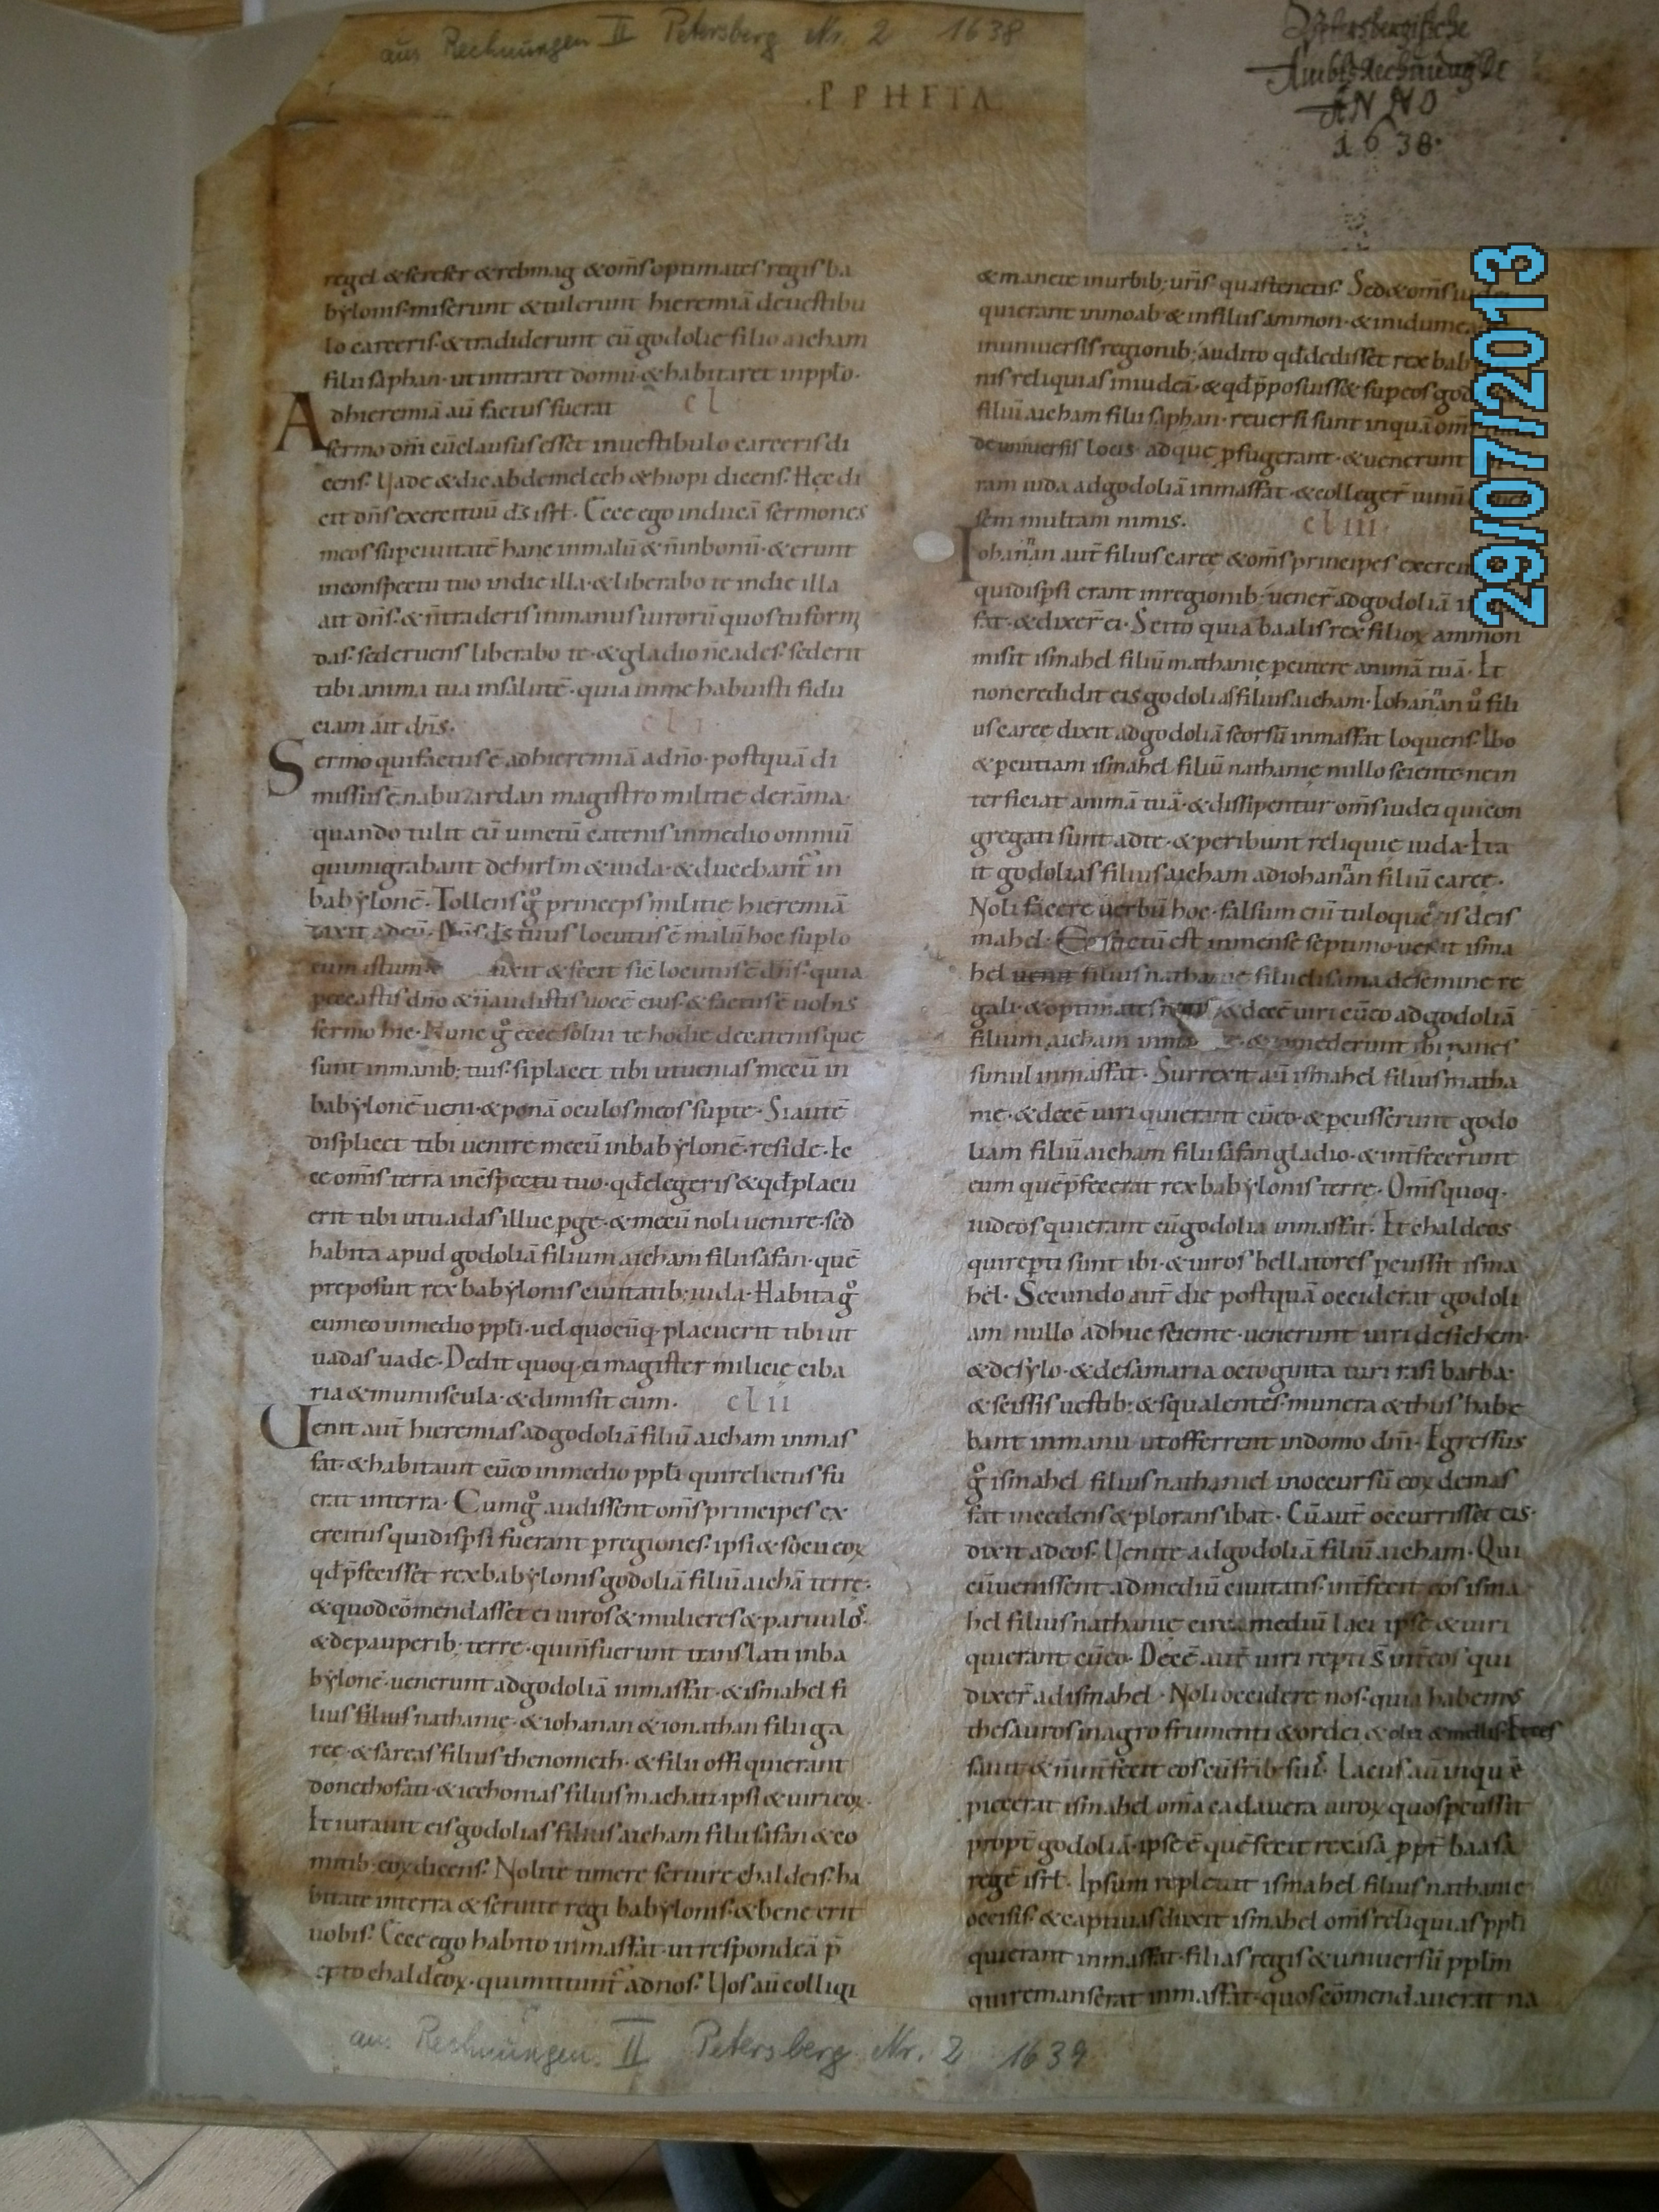 aus Rechnungen II Petersberg Nr. 2 1638
·PPHETA
Petersbergische
Ambts Rechnung De
ANNO
1638·
29/07/2013
regel &sereser &rebmag &om̄s optimates regis ba
bẏlonis·miserunt &tulerunt hieremiā deuestibu
lo carceris·&tradiderunt eū godolie filio aicham
filii saphan·ut intraret domū·&habitaret inpp̄lo·
Adhieremiā aū factus fuerat cl
sermo dn̄i cū clausus esset inuestibulo carceris di
cens· Uade &dic abdemelech &hiopi dicens· Hęc di
cit dn̄s exercituū d̄s isr̄l· Ecce ego inducā sermones
meos sup ciuitatē hanc inmalū &n̄ inbonū·&erunt
inconspectu tuo indie illa·&liberabo te indie illa
ait dn̄s·&n̄ traderis inmanus uirorū quos tu form
das·sed eruens liberabo te·&gladio n̄ cades·sed erit
tibi anima tua insalutē·quia inme habuisti fidu
ciam ait dn̄s· cli
Sermo qui factus ē adhieremiā adn̄o·postquā di
missus ē nabuzardan magistro militię derāma·
quando tulit eū uinctū catenis inmedio omniū
qui migrabant dehirl̄m &iuda·&ducebant̄ in
babẏlonē·Tollens g̊ princeps militię hieremiā
dixit adeū· Dn̄s d̄s tuus locutus ē malū hoc sup lo
cum istum· &fecit sic̄ locutus ē dn̄s·quia
peccastis dn̄o &n̄ audistis uocē eius·&factus ē uobis
sermo hic·Nunc g̊ ecce solui te hodie decatenis que
sunt inmanib; tuis·si placet tibi ut uenias mecū in
babẏlonē ueni·&ponā oculos meos sup te· Si autē
displicet tibi uenire mecū inbabẏlonē·reside·Ec
ce om̄is terra inc̄spectu tuo·qd̄ elegeris &qd̄ placu
erit tibi ut uadas illuc p̱ge·&mecū noli uenire·sed
habita apud godoliā filium aicham filii safan·quē
preposuit rex babẏlonis ciuitatib; iuda·Habita g̊
cum eo inmedio pp̄li·uel quocūq· placuerit tibi ut
uadas uade·Dedit quoq· ei magister milicię ciba
ria &munuscula·&dimisit eum· clii
Uenit aut̄ hieremias adgodoliā filiū aicham inmas
fat·&habitauit cū eo inmedio pp̄li qui relictus fu
erat interra· Cumq̊ audissent om̄s principes ex
ercitus qui disp̱si fuerant p̱ regiones·ipsi &socii eoꝝ
qd̄ p̄fecisset rex babẏlonis godoliā filiū aichā terre·
&quod cōmendasset ei uiros &mulieres &paruulos·
&depauperib; terre·qui n̄ fuerunt translati inba
bẏlonē·uenerunt adgodoliā inmassat·&ismahel fi
lius filius nathanię·&iohanan &ionathan filii ga
reę·&sareas filius thenometh·&filii offi qui erant
donethofati·&iechonias filius machati·ipsi &uiri eoꝝ·
Et iurauit eis godolias filius aicham filii safan &co
mitib; eoꝝ dicens· Nolite timere seruire chaldeis·ha
bitate interra &seruite regi babẏlonis·&bene erit
uobis· Ecce ego habito inmassat·ut respondeā p̄
cepto chaldeoꝝ·qui mittunt̄ adnos· Uos aū colligi
&manete inurbib; ur̄is·quas tenetis· Sed &om̄s
qui erant inmoab &infiliis ammon·&inidumea
inuniuersis regionib; audito qd̄ dedisset rex bab
nis reliquias iniudeā·&qd̄ p̄posuiss& sup eos god
filiū aicham filii saphan·reuersi sunt inquā om̄
deuniuersis locis adque p̱fugerant·&uenerunt
ram iuda adgodoliā inmassat·&colleger̄ uinū
sem multam nimis· cliii
Iohanan aut̄ filius caree &om̄s principes exerci
qui disp̱si erant inregionib; uener̄ adgodoliā i
fat·&dixer̄ ei· Scito quia baalis rex filioꝝ ammon
misit ismahel filiū mathanię p̱cutere animā tuā· Et
non credidit eis godolias filius aicham·Iohanan ů fili
us caree dixit adgodoliā seorsū inmassat loquens· Ibo
&p̱cutiam ismahel filiū nathanię nullo sciente·ne in
terficiat animā tuā·&dissipentur om̄s iudei qui con
gregati sunt adte·&peribunt reliquię iuda·Et a
it godolias filius aicham adiohanan filiū caree·
Noli facere uerbū hoc·falsum eni tu loqueris deis
mahel· factū est inmense septimo·uenit isma
hel uenit filius nathanię filii elisama desemine re
gali·&optimates regis &decē uiri cū eo adgodoliā
filium aicham &comederunt ibi panes
simul inmassat· Surrexit aū ismahel filius matha
nię·&decē uiri qui erant cū eo·&p̱cusserunt godo
liam filiū aicham filii safan gladio·&int̄fecerunt
eum quē p̄fecerat rex babẏlonis terre· Om̄s quoq·
iudeos qui erant cū godolia inmassat· Et chaldeos
qui rep̱ti sunt ibi·&uiros bellatores p̱cussit isma
hel· Secundo aut̄ die postquā occiderat godoli
am nullo adhuc sciente·uenerunt uiri desichem·
&desẏlo·&desamaria octoginta uiri rasi barba·
&scissis uestib; &squalentes·munera &thus habe
bant inmanu ut offerrent indomo dn̄i· Egressus
g̊ ismahel filius nathaniel inoccursū eoꝝ demas
fat incedens &plorans ibat· Cū aut̄ occurrisset eis·
dixit adeos· Uenite adgodoliā filiū aicham· Qui
cū uenissent admediū ciuitatis·int̄fecit eos isma
hel filius nathanię circa mediū laci ipse &uiri
qui erant cū eo· Decē aut̄ uiri rep̱ti s̄ int̄ eos qui
dixer̄ adismahel· Noli occidere nos·quia habem̄
thesauros inagro frumenti &ordei &olei &mellis·Et ces
sauit &n̄ int̄fecit eos cū frib; suis· Lacus aū inquē
piecerat ismahel om̄a cadauera uiroꝝ quos p̱cussit
propt̄ godoliā·ipse ē quē fecit rex isa ppt̄ baasa
regē isr̄l· Ipsum repleuit ismahel filius nathanię
occisis·&captiuas duxit ismahel om̄s reliquias pp̄li
qui erant inmassat·filias regis &uniuersū pp̄lm
qui remanserat inmassat·quos cōmendauerat na
aus Rechnungen II Petersberg Nr. 2 1639